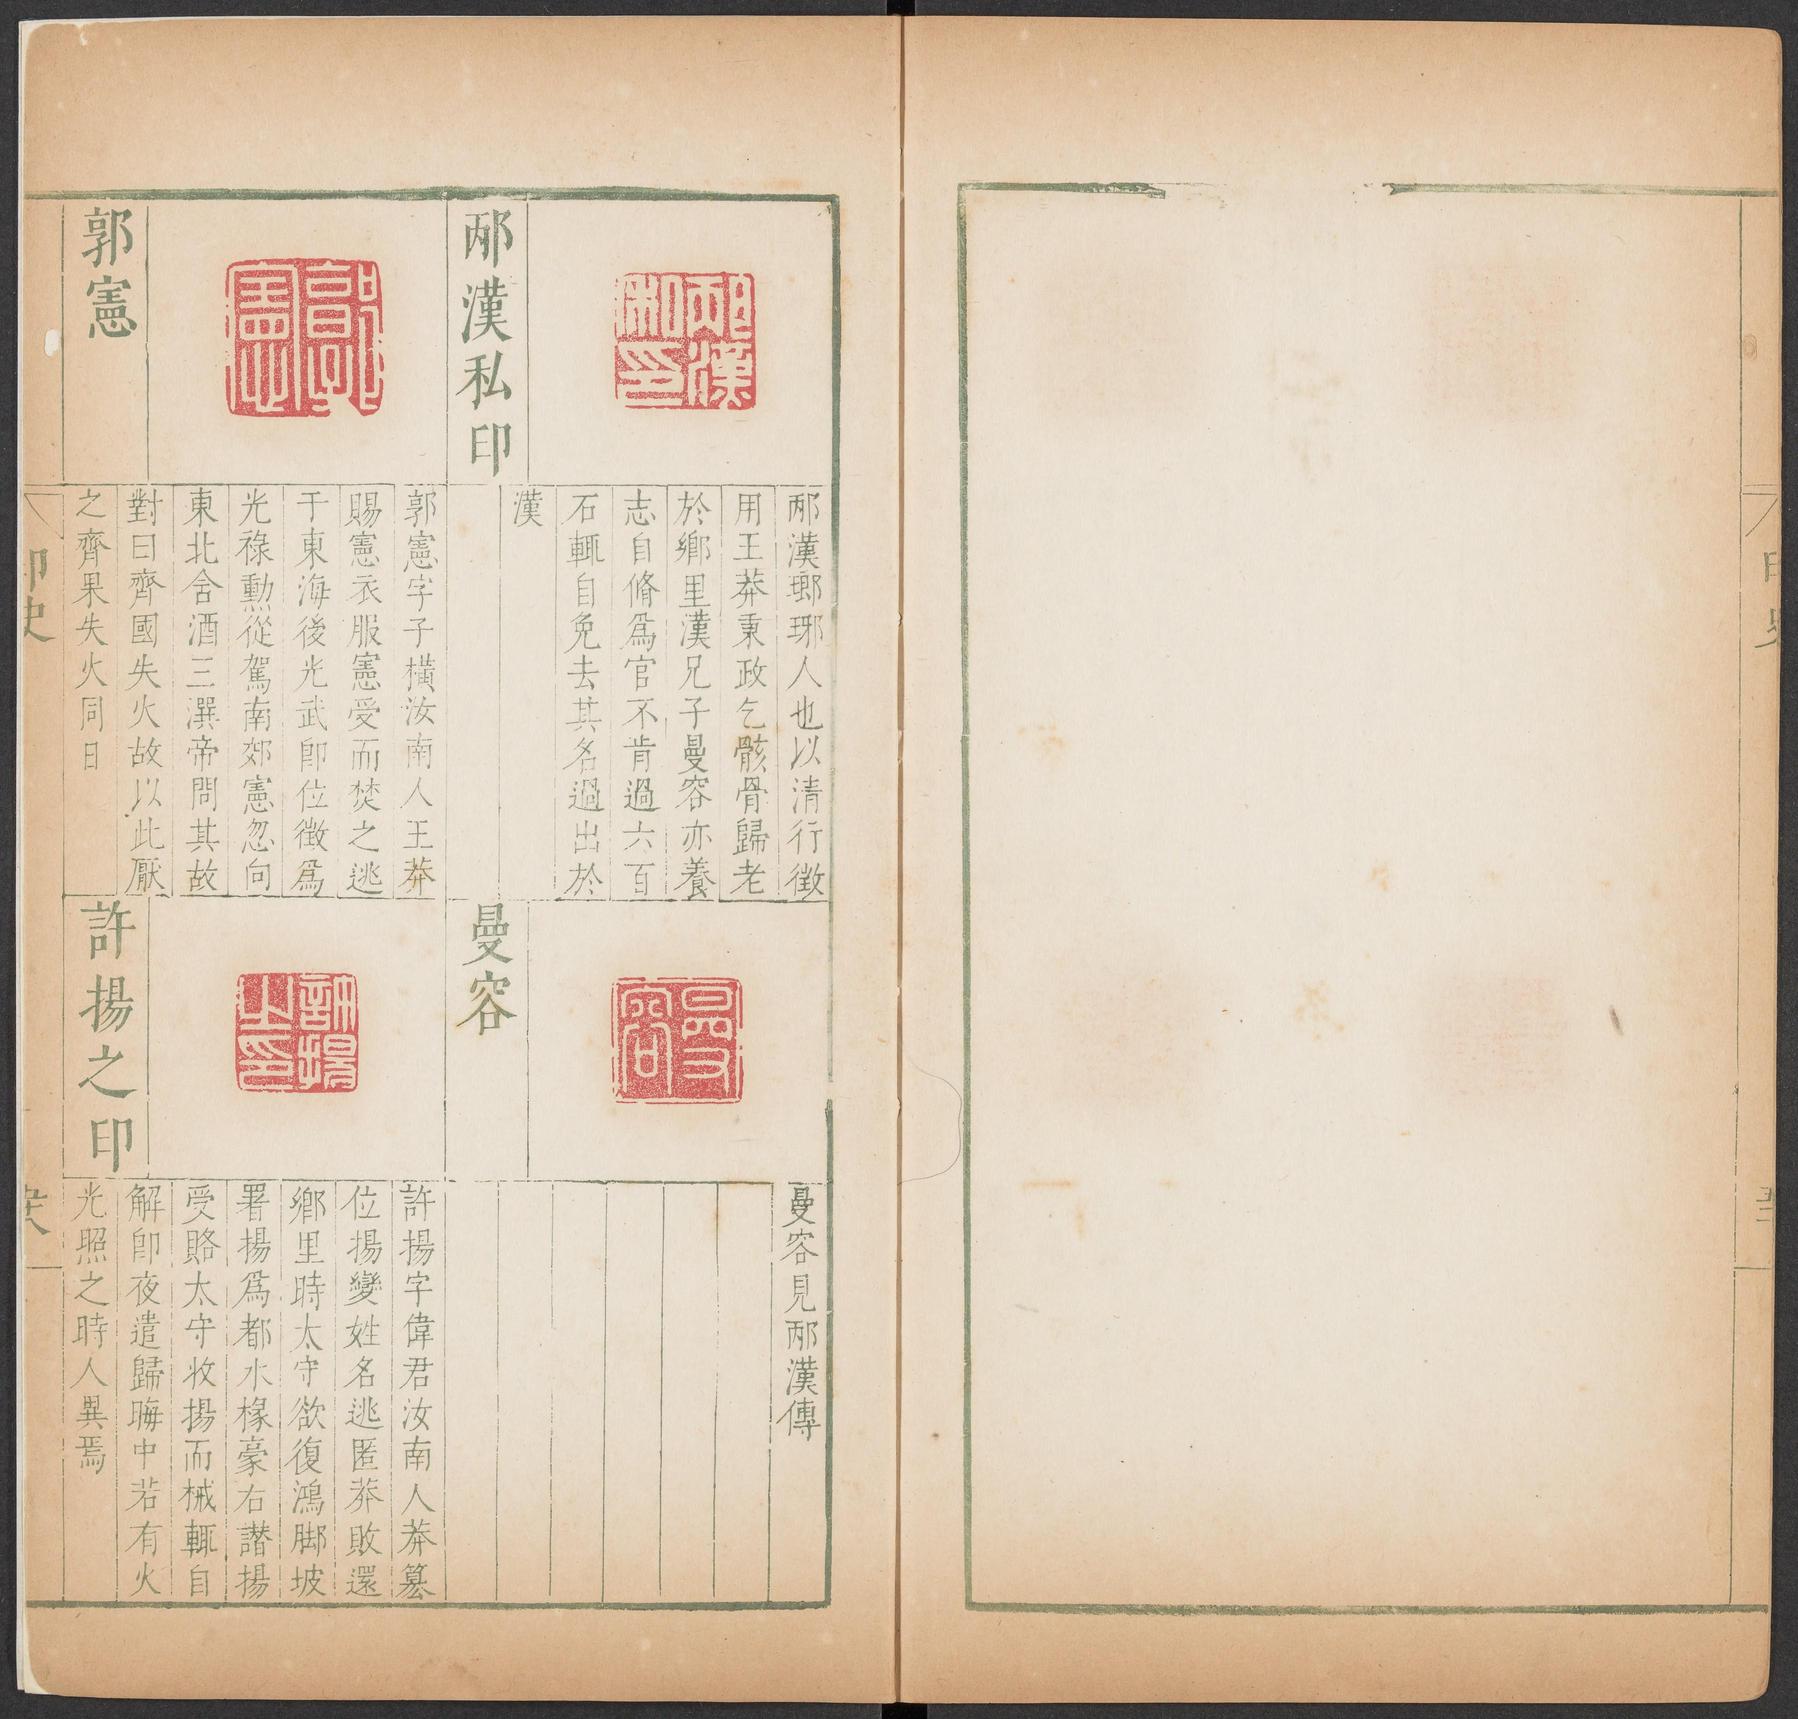 邴漢私印
邴漢瑯琊人也以清行徵
用王莽秉政乞骸骨歸老
於鄉里漢兄子曼容亦養
志自脩爲官不肯過六百
石輒自免去其名過出於
漢
郭憲
郭憲字子橫汝南人王莽
賜憲衣服憲受而焚之逃
于東海後光武卽位徵爲
光祿勳從駕南郊憲忽向
東北含酒三潠帝問其故
對曰齊國失火故以此厭
之齊果失火同日
曼容
曼容見邴漢傳
許揚之印
許揚字偉君汝南人莽篡
位揚變姓名逃匿莽敗還
鄉里時太守欲復鴻脚坡
署揚爲都水椽豪右譖揚
受賂太守收揚而械輒自
解卽夜遣歸晦中若有火
光照之時人異焉
印史